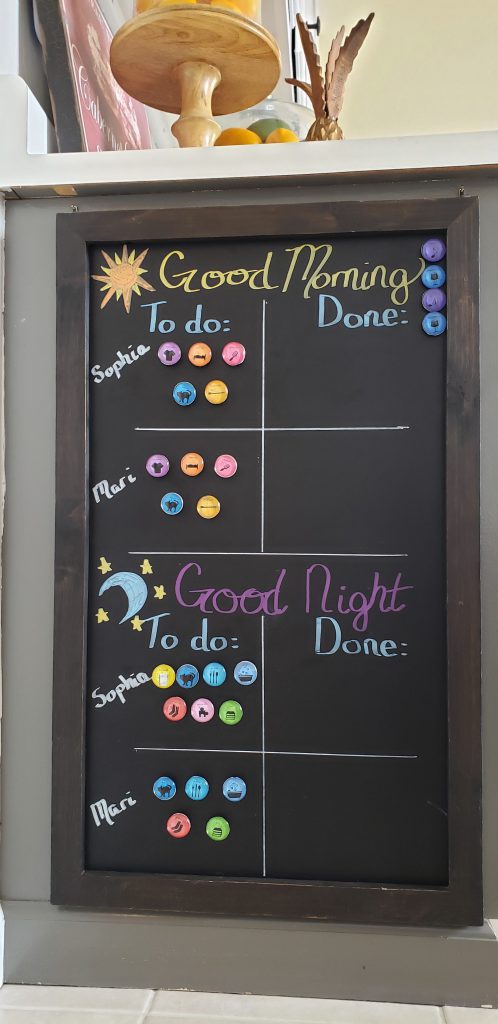 Good Morning
To do: Done:
Sophia
Mari
Good Night
To do: Done:
Sophia
Mari